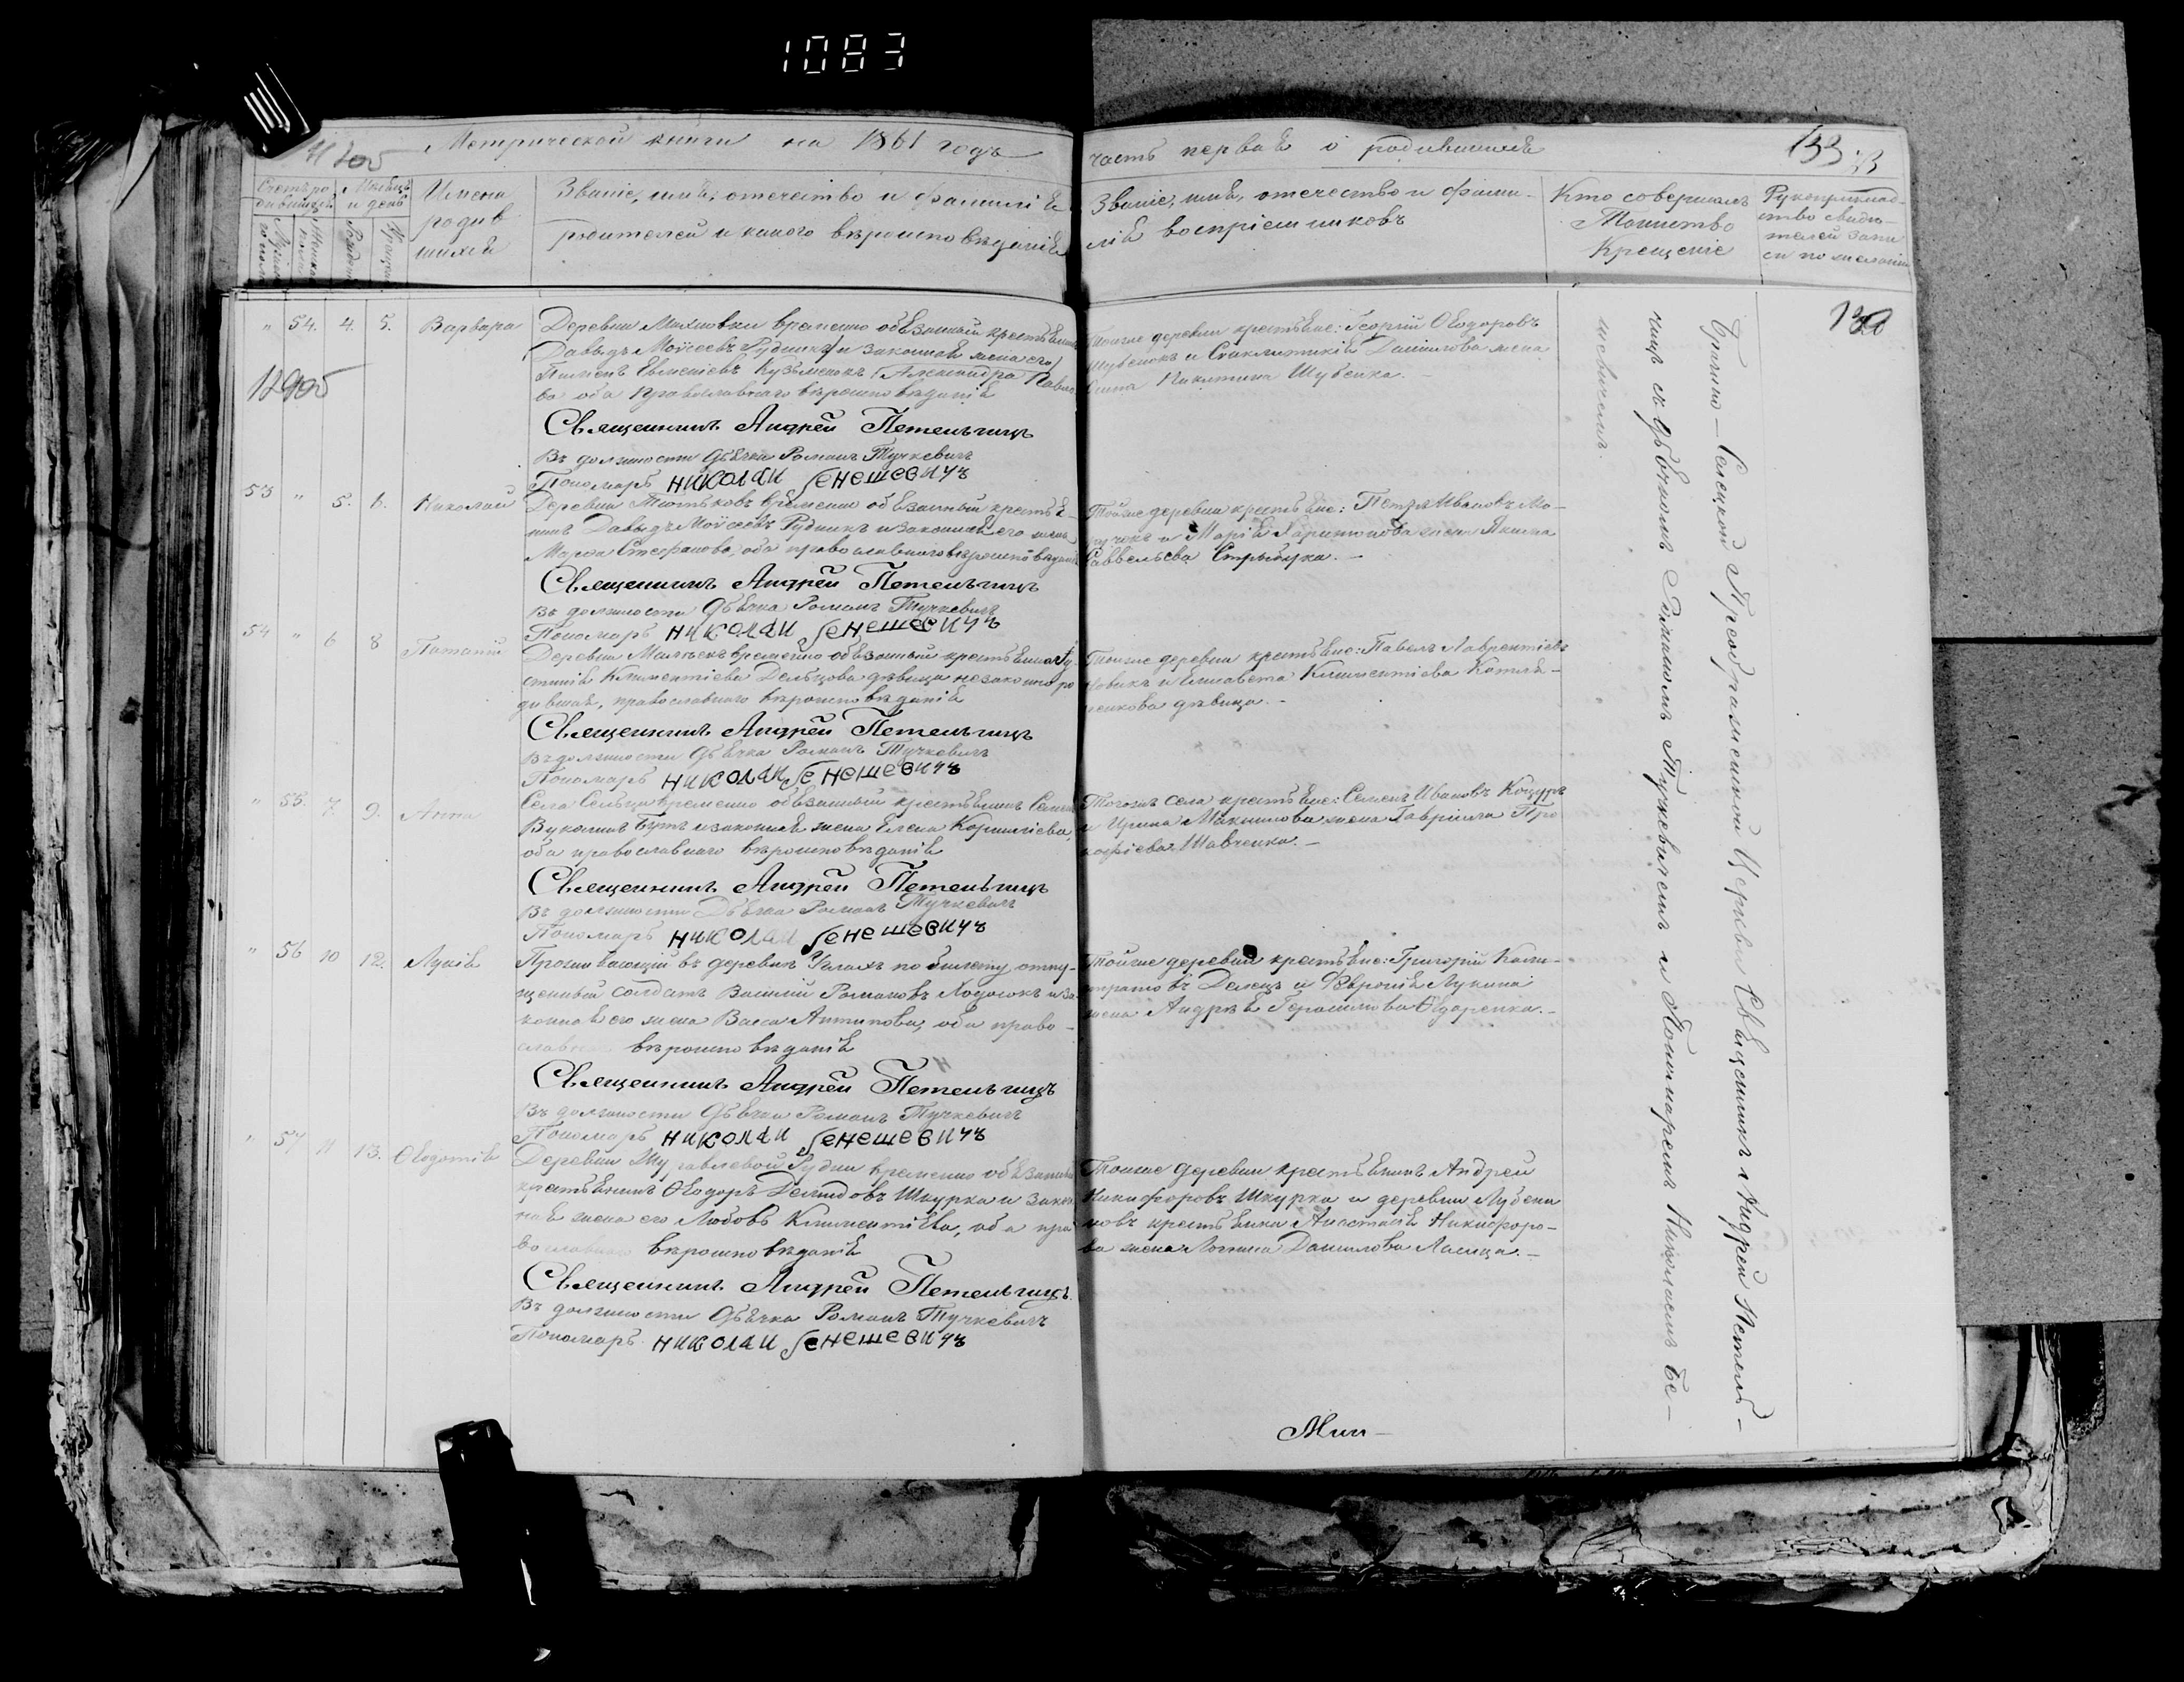 1083
Метрической книги на 1861 годъ
часть первая о родившихся
133
Счетъ ро-
дившихся
Мѣсяцъ
и день
Имена
родив
шихся
Званіе, имя, отечество и фамилія
родителей и какого вѣроисповѣданія
Званіе, имя, отечество и фами-
лія воспріемниковъ
Кто совершалъ
Таинство
Крещенія
Рукоприклад-
ство свидѣ-
телей запи
си по желанію
" 54. 4. 5. Варвара
Деревни Михновки временно обязанный крестьянинъ
Давыдъ Моисеевъ Рудникъ и законная жена его
Пименъ Евменіевъ Кузьменокъ Александра Павло
ва оба православнаго вѣроисповѣданія
Священникъ Андрей Петельчицъ
Въ должности Дьячка Романъ Тучкевичъ
Пономарь Николай Бенешевичъ
Тойже деревни крестьяне: Георгій Ѳеодоровъ
Шубенокъ и Синклитикія Данилова жена
Никитина Шубенка.
53 " 5. 6. Николай
Деревни временно обязанный крестья-
нинъ Давыдъ Моисеевъ Рудникъ и законная его жена
Марѳа Стефанова, оба православнаго вѣроисповѣданія
Священникъ Андрей Петельчицъ
Въ должности Дьячка Романъ Тучкевичъ
Пономарь Николай Бенешевичъ
Тойже деревни крестьяне: Петръ Ивановъ
и Марія Харитонова жена Якима
Саввельева Стрыбука. -
54 " 6 8 Потапій
Деревни временно обязанный крестьянка Іу
стинія Климентіева Дельцова дѣвица незаконно ро
дившая, православнаго вѣроисповѣданія
Священникъ Андрей Петельчицъ
Въ должности Дьячка Романъ Тучкевичъ
Пономарь Николай Бенешевичъ
Тойже деревни крестьяне: Павелъ Лаврентіевъ
и Елисавета Климентіева Котля-
ренкова дѣвица. -
" 55. 7. 9. Анна
Села Сельца временно обязанный крестьянинъ
Вуколинъ Бутъ и законная жена Елена Корниліева,
оба православнаго вѣроисповѣданія
Священникъ Андрей Петельчицъ
Въ должности Дьячка Романъ Тучкевичъ
Пономарь Николай Бенешевичъ
Тогожъ села крестьяне: Семенъ Ивановъ Коцуръ
и Ирина Максимова жена Гавріила Про
кофіева Шавченка. -
" 56 10 12. Лукія
Проживающій въ деревнѣ по билету отпу-
щенный солдатъ Василій Романовъ Ходосокъ и за-
конная его жена Васса Антипова, оба право-
славнаго вѣроисповѣданія
Священникъ Андрей Петельчицъ
Въ должности Дьячка Романъ Тучкевичъ
Пономарь Николай Бенешевичъ
Тойже деревни крестьяне: Григорій Кали-
стратовъ Делецъ и Ѳевронія Лукина
жена Андрея Герасимова Ѳедоренка. -
" 57 11 13. Ѳеодотія
Деревни Журавлевой Рудни временно обязанный
крестьянинъ Ѳеодоръ Демидовъ Шкурка и закон
ная жена его Любовь Климентіева, оба пра
вославнаго вѣроисповѣданія
Священникъ Андрей Петельчицъ
Въ должности Дьячка Романъ Тучкевичъ
Пономарь Николай Бенешевичъ
Тойже деревни крестьянинъ Андрей
Никифоровъ Шкурка и деревни Лубени
ковъ крестьянка Анастасія Никифоро-
ва жена Логина Данилова Ласица. -
Бричино - Селецкой Преображенской Церкви Священникъ Андрей Петель-
чицъ съ Дьячкомъ Романомъ Тучкевичемъ и Пономаремъ Николаемъ Бе-
нешевичемъ.
Мит-